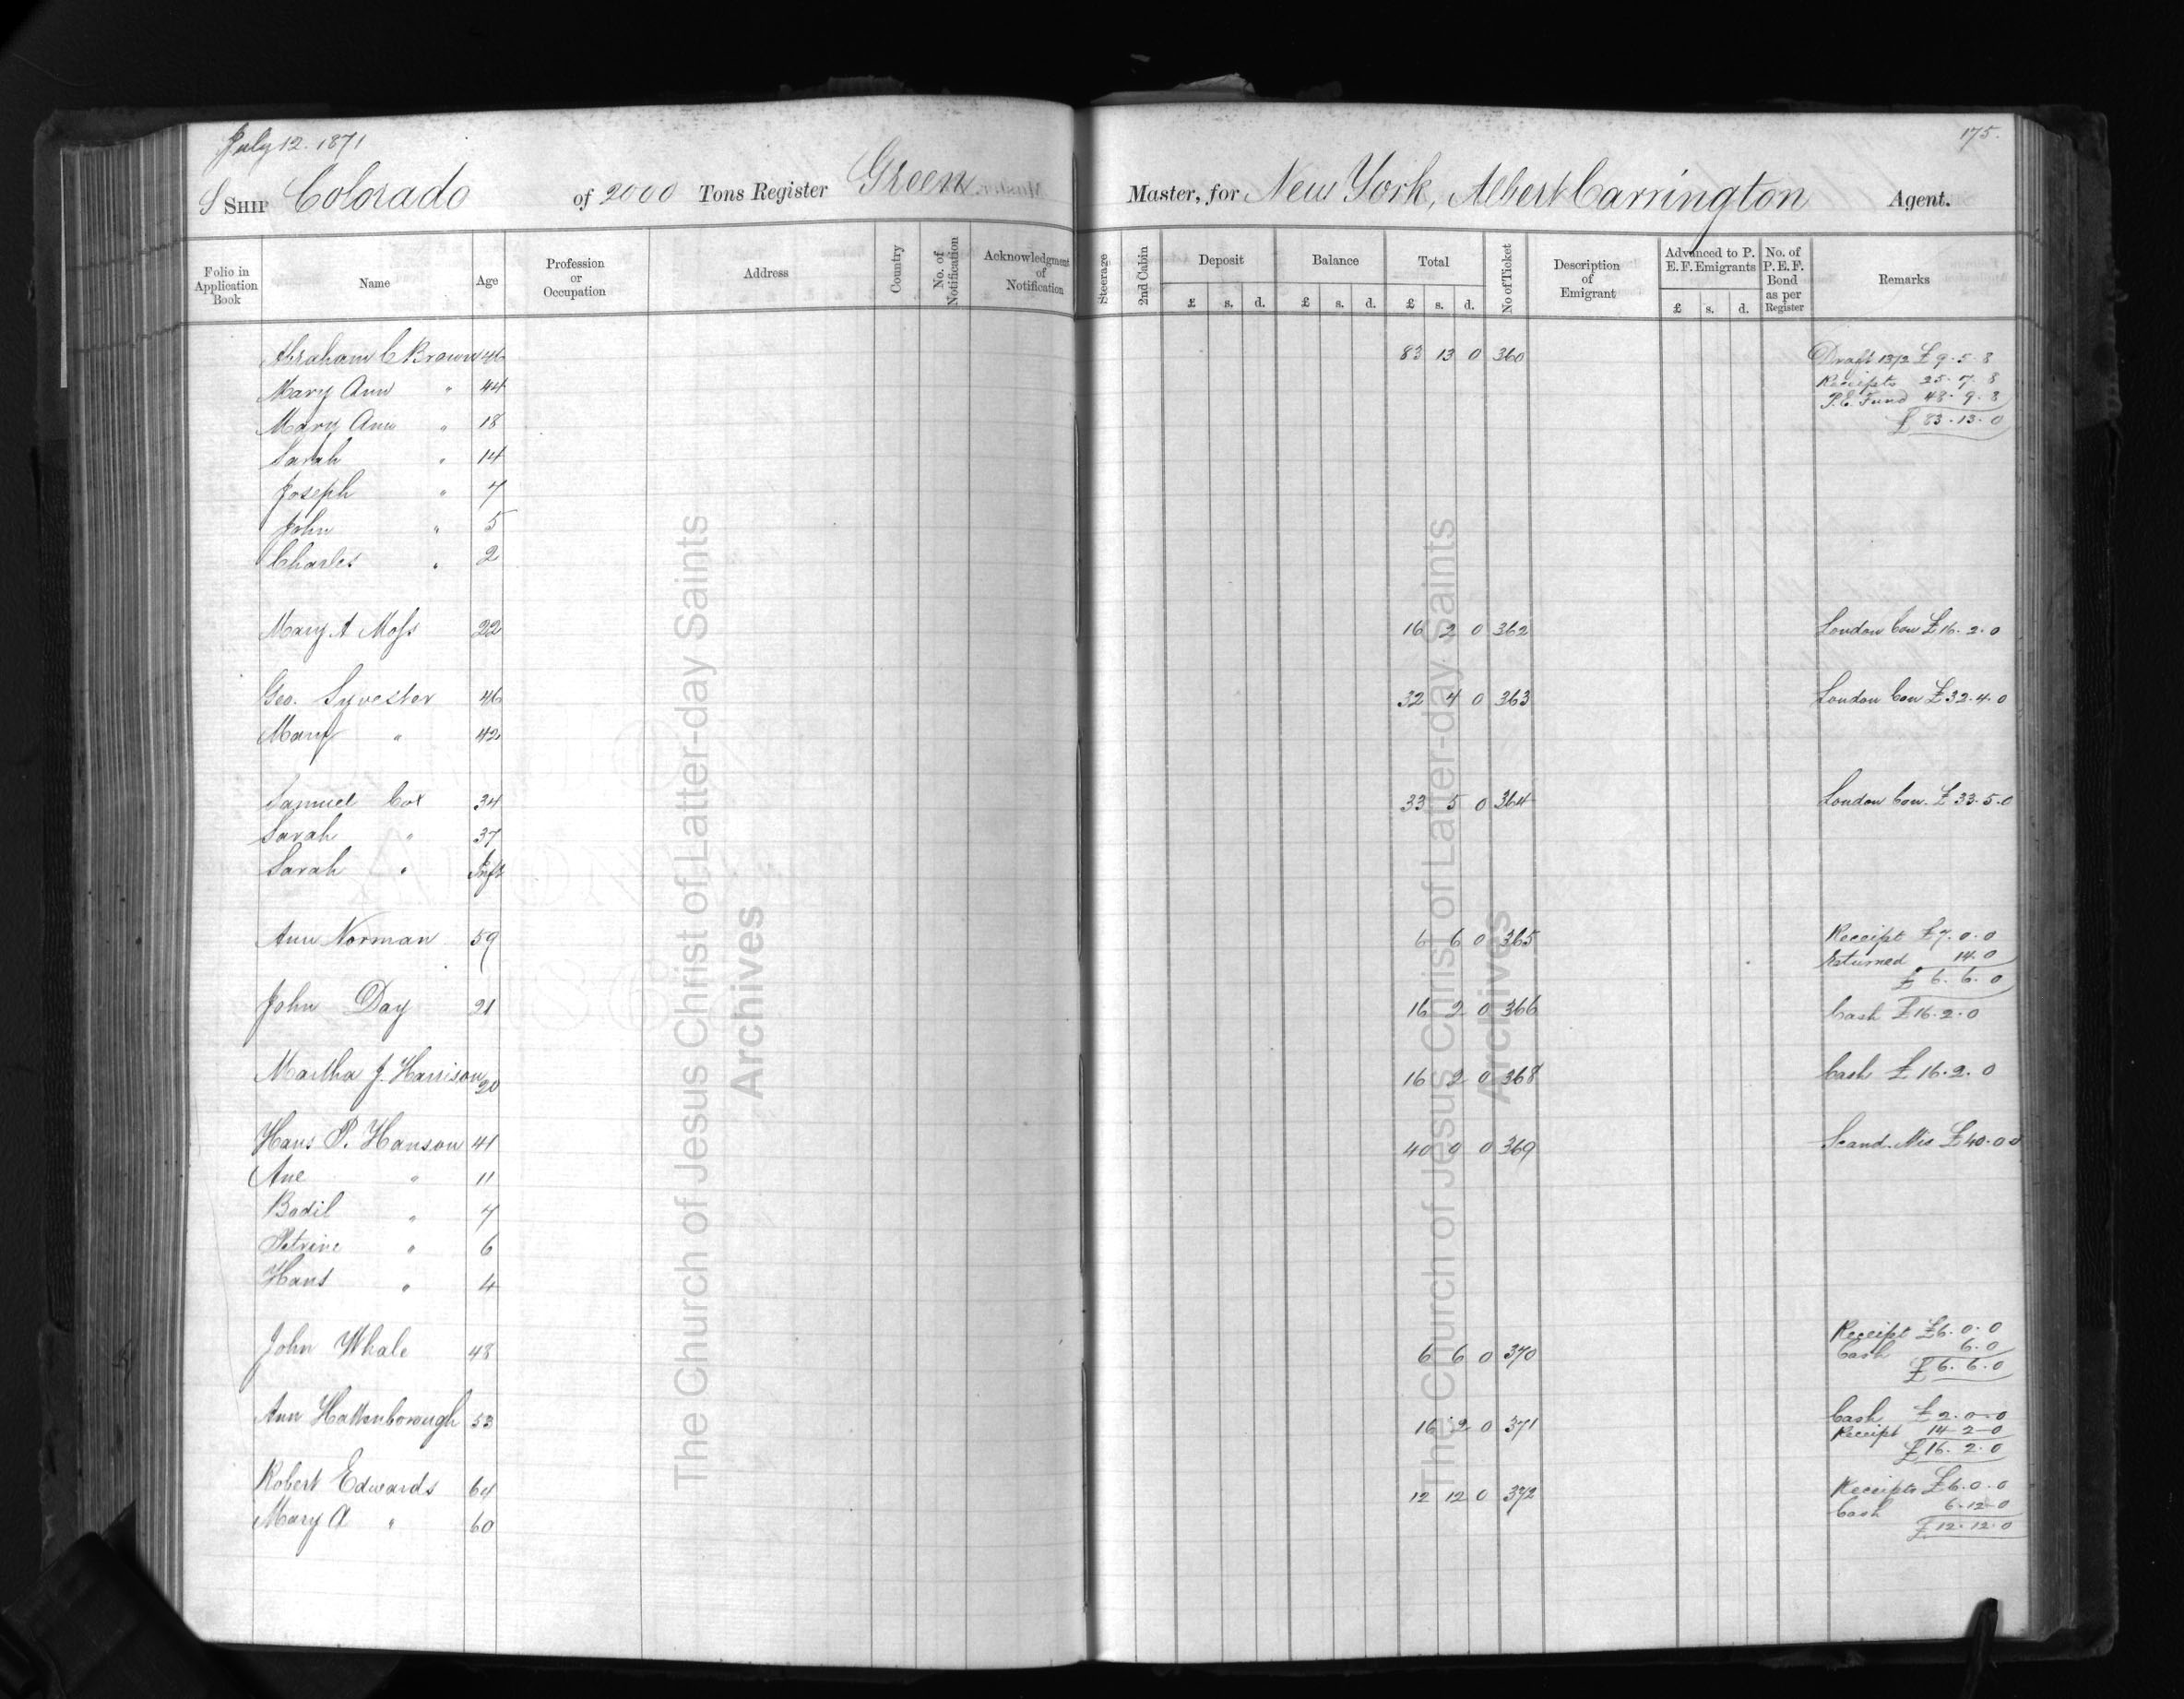 July 12. 1871
175.
S Ship Colorado of 2000 Tons Register Green Master, for New York, Albert Carrington Agent.
Folio in Application Book Name Age Profession or Occupation Address Country No. of Notification Acknowledgment of Notification Steerage 2nd Cabin Deposit £ s. d. Balance £ s. d. Total £ s. d. No of Ticket Description of Emigrant Advanced to P. E. F. Emigrants £ s. d. No. of P. E. F. Bond as per Register Remarks
Abraham C Brown 46 83 13 0 360 Draft 1372 £9.5.8
Mary Ann " 44 Receipts 25.7.8
P.E. Fund 48.9.8
Mary Ann " 18 £83.13.0
Sarah " 14
Joseph " 7
John " 5
Charles " 2
Mary A Moss 22 16 2 0 362 London Con £16.2.0
Geo. Syvester 46 32 4 0 363 London Con £32.4.0
Mary " 42
Samuel Cox 34 33 5 0 364 London Con. £33.5.0
Sarah " 37
Sarah " Inft
Ann Norman 59 6 6 0 365 Receipt £7.0.0
Returned 14.0
£6.6.0
John Day 21 16 2 0 366 Cash £16.2.0
Martha J. Harrison 20 16 2 0 368 Cash £16.2.0
Hans P. Hanson 41 40 0 0 369 Scand. Mis £40.0 0
Ane " 11
Bodil " 7
Petrine " 6
Hans " 4
John Whale 48 6 6 0 370 Receipt £6.0.0
Cash 6.0
£6.6.0
Ann Hattenborough 53 16 2 0 371 Cash £2.0-0
Receipt 14-2-0
£16.2.0
Robert Edwards 64 12 12 0 372 Receipts £6.0.0
Mary A " 60 Cash 6-12-0
£12.12.0
The Church of Jesus Christ of Latter-day Saints
Archives
The Church of Jesus Christ of Latter-day Saints
Archives